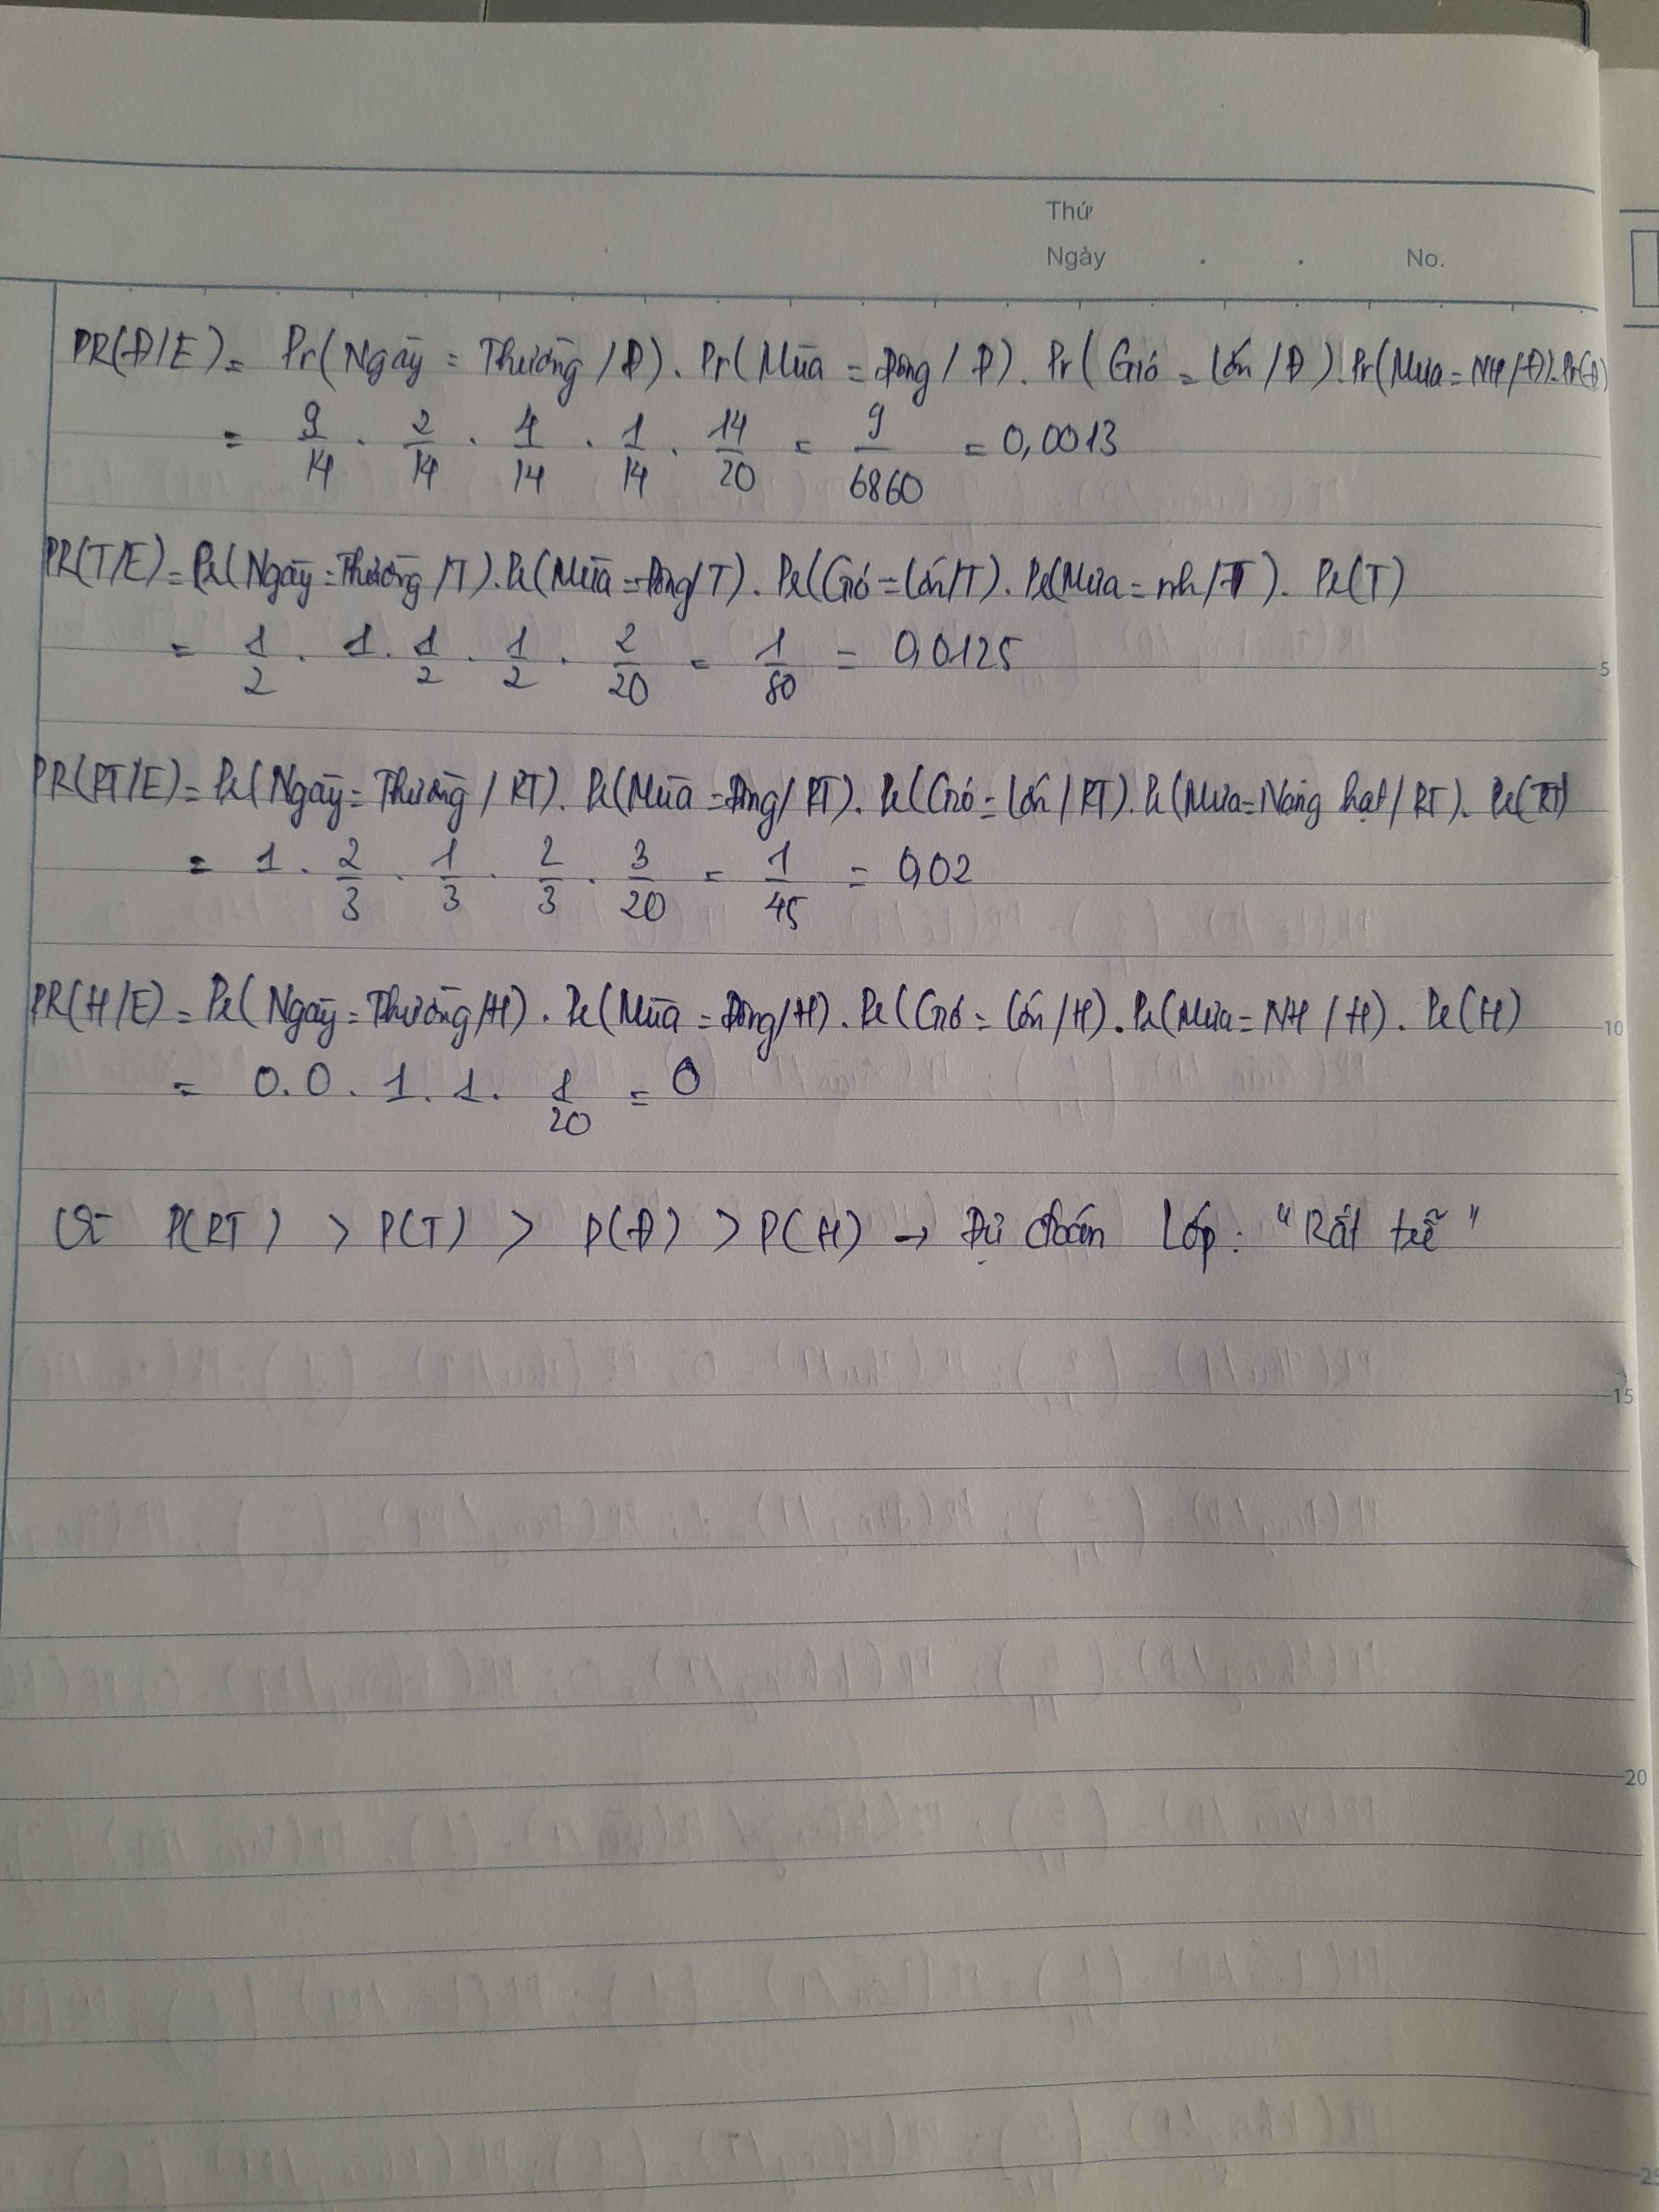 Thứ
Ngày . . No.
PR(Đ/E) = Pr(Ngày = Thường / Đ) . Pr(Mùa = Đông / Đ) . Pr(Gió = Lớn / Đ) . Pr(Mưa = NH / Đ) . Pr(Đ)
= 9/14 . 2/14 . 4/14 . 1/14 . 14/20 = 9/6860 = 0,0013
PR(T/E) = Pr(Ngày = Thường / T) . Pr(Mùa = Đông / T) . Pr(Gió = Lớn / T) . Pr(Mưa = nh / T) . Pr(T)
5
= 1/2 . 1 . 1/2 . 1/2 . 2/20 = 1/80 = 0,0125
PR(RT/E) = Pr(Ngày = Thường / RT) . Pr(Mùa = Đông / RT) . Pr(Gió = Lớn / RT) . Pr(Mưa = Nặng hạt / RT) . Pr(RT)
= 1 . 2/3 . 1/3 . 2/3 . 3/20 = 1/45 = 0,02
PR(H/E) = Pr(Ngày = Thường / H) . Pr(Mùa = Đông / H) . Pr(Gió = Lớn / H) . Pr(Mưa = NH / H) . Pr(H)
10
= 0 . 0 . 1 . 1 . 1/20 = 0
Vì P(RT) > P(T) > P(Đ) > P(H) → Dự đoán Lớp : "Rất trễ"
15
20
25